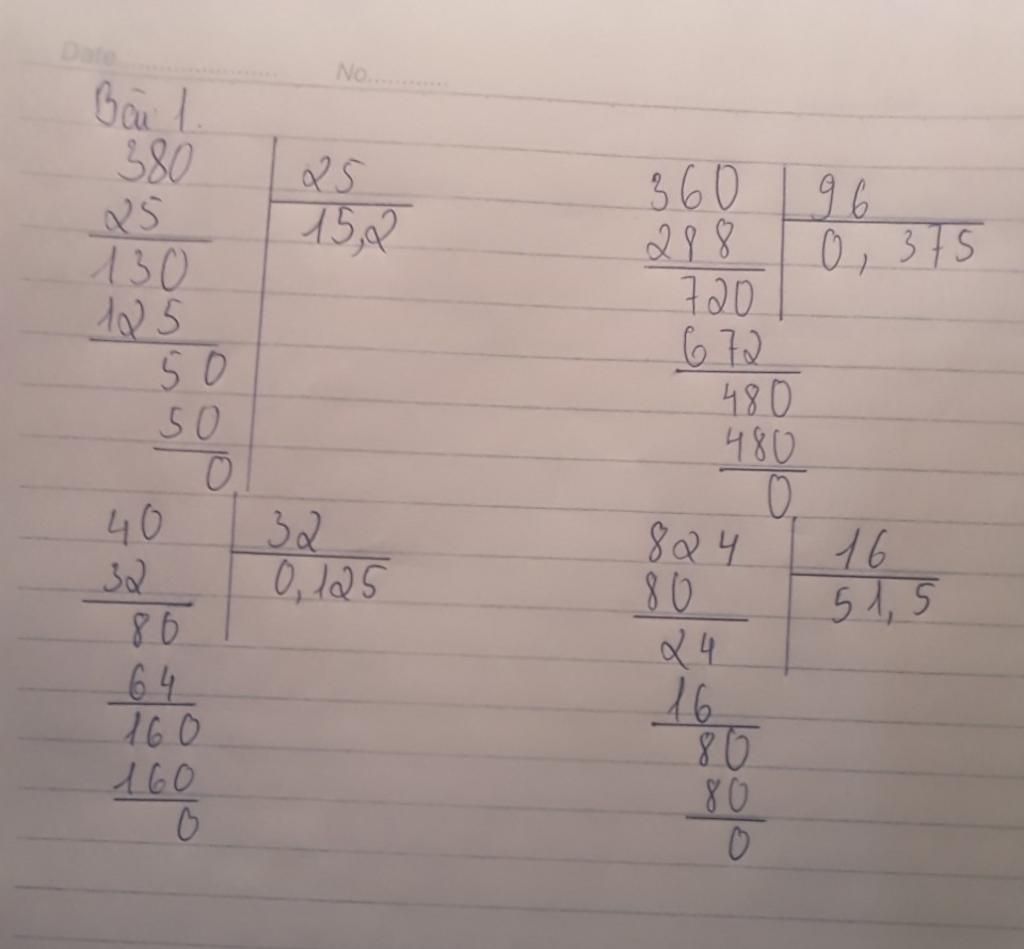 Date.................... No...........
Bài 1.
380 25
25 15,2
130
125
50
50
0
360 96
288 0,375
720
672
480
480
0
40 32
32 0,125
80
64
160
160
0
824 16
80 51,5
24
16
80
80
0